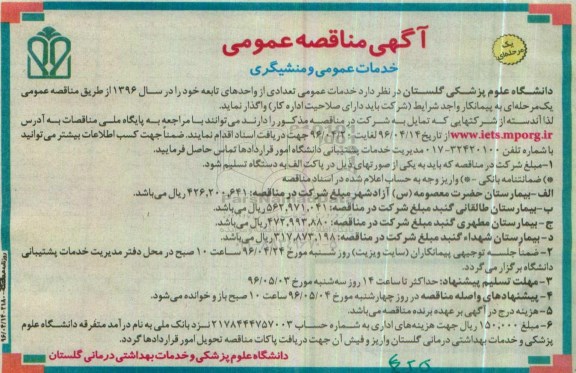 آگهی مناقصه عمومی
یک مرحله‌ای
خدمات عمومی و منشیگری
دانشگاه علوم پزشکی گلستان در نظر دارد خدمات عمومی تعدادی از واحدهای تابعه خود را در سال ۱۳۹۶ از طریق مناقصه عمومی
یک مرحله‌ای به پیمانکار واجد شرایط (شرکت باید دارای صلاحیت اداره کار) واگذار نماید.
لذا آندسته از شرکتهایی که تمایل به شرکت در مناقصه مذکور را دارند می توانند با مراجعه به پایگاه ملی مناقصات به آدرس
www.iets.mporg.ir از تاریخ ۹۶/۰۴/۱۴ لغایت ۹۶/۰۴/۲۰ جهت دریافت اسناد اقدام نمایند. ضمناً جهت کسب اطلاعات بیشتر می توانید
با شماره تلفن ۳۲۴۲۰۱۰۰-۰۱۷ مدیریت خدمات پشتیبانی دانشگاه امور قراردادها تماس حاصل فرمایید.
۱-مبلغ شرکت در مناقصه که باید به یکی از صورتهای ذیل در پاکت الف به دستگاه تسلیم شود.
*) ضمانتنامه بانکی - *) واریز وجه به حساب اعلام شده در اسناد مناقصه
الف-بیمارستان حضرت معصومه (س) آزادشهر مبلغ شرکت در مناقصه: ۴۲۶,۲۰۰,۶۴۱ ریال می‌باشد.
ب-بیمارستان طالقانی گنبد مبلغ شرکت در مناقصه: ۵۶۲,۹۷۱,۰۴۱ ریال می‌باشد.
ج-بیمارستان مطهری گنبد مبلغ شرکت در مناقصه: ۴۷۲,۹۹۳,۸۸۰ ریال می‌باشد.
د-بیمارستان شهداء گنبد مبلغ شرکت در مناقصه: ۳۱۷,۸۷۳,۱۹۸ ریال می‌باشد.
۲-ضمناً جلسه توجیهی پیمانکاران (سایت ویزیت) روز شنبه مورخ ۹۶/۰۴/۲۴ ساعت ۱۰ صبح در محل دفتر مدیریت خدمات پشتیبانی
دانشگاه برگزار می‌گردد.
۳-مهلت تسلیم پیشنهاد: حداکثر تا ساعت ۱۴ روز سه‌شنبه مورخ ۹۶/۰۵/۰۳
۴-پیشنهادهای واصله مناقصه در روز چهارشنبه مورخ ۹۶/۰۵/۰۴ ساعت ۱۰ صبح باز و خوانده می‌شود.
۵-هزینه درج در آگهی بر عهده برنده مناقصه می‌باشد.
۶-مبلغ ۱۵۰,۰۰۰ ریال جهت هزینه‌های اداری به شماره حساب ۲۱۷۸۴۴۴۷۵۷۰۰۳ نزد بانک ملی به نام درآمد متفرقه دانشگاه علوم
پزشکی و خدمات بهداشتی درمانی گلستان واریز و فیش آن جهت دریافت پاکات مناقصه تحویل امور قراردادها گردد.
دانشگاه علوم پزشکی و خدمات بهداشتی درمانی گلستان